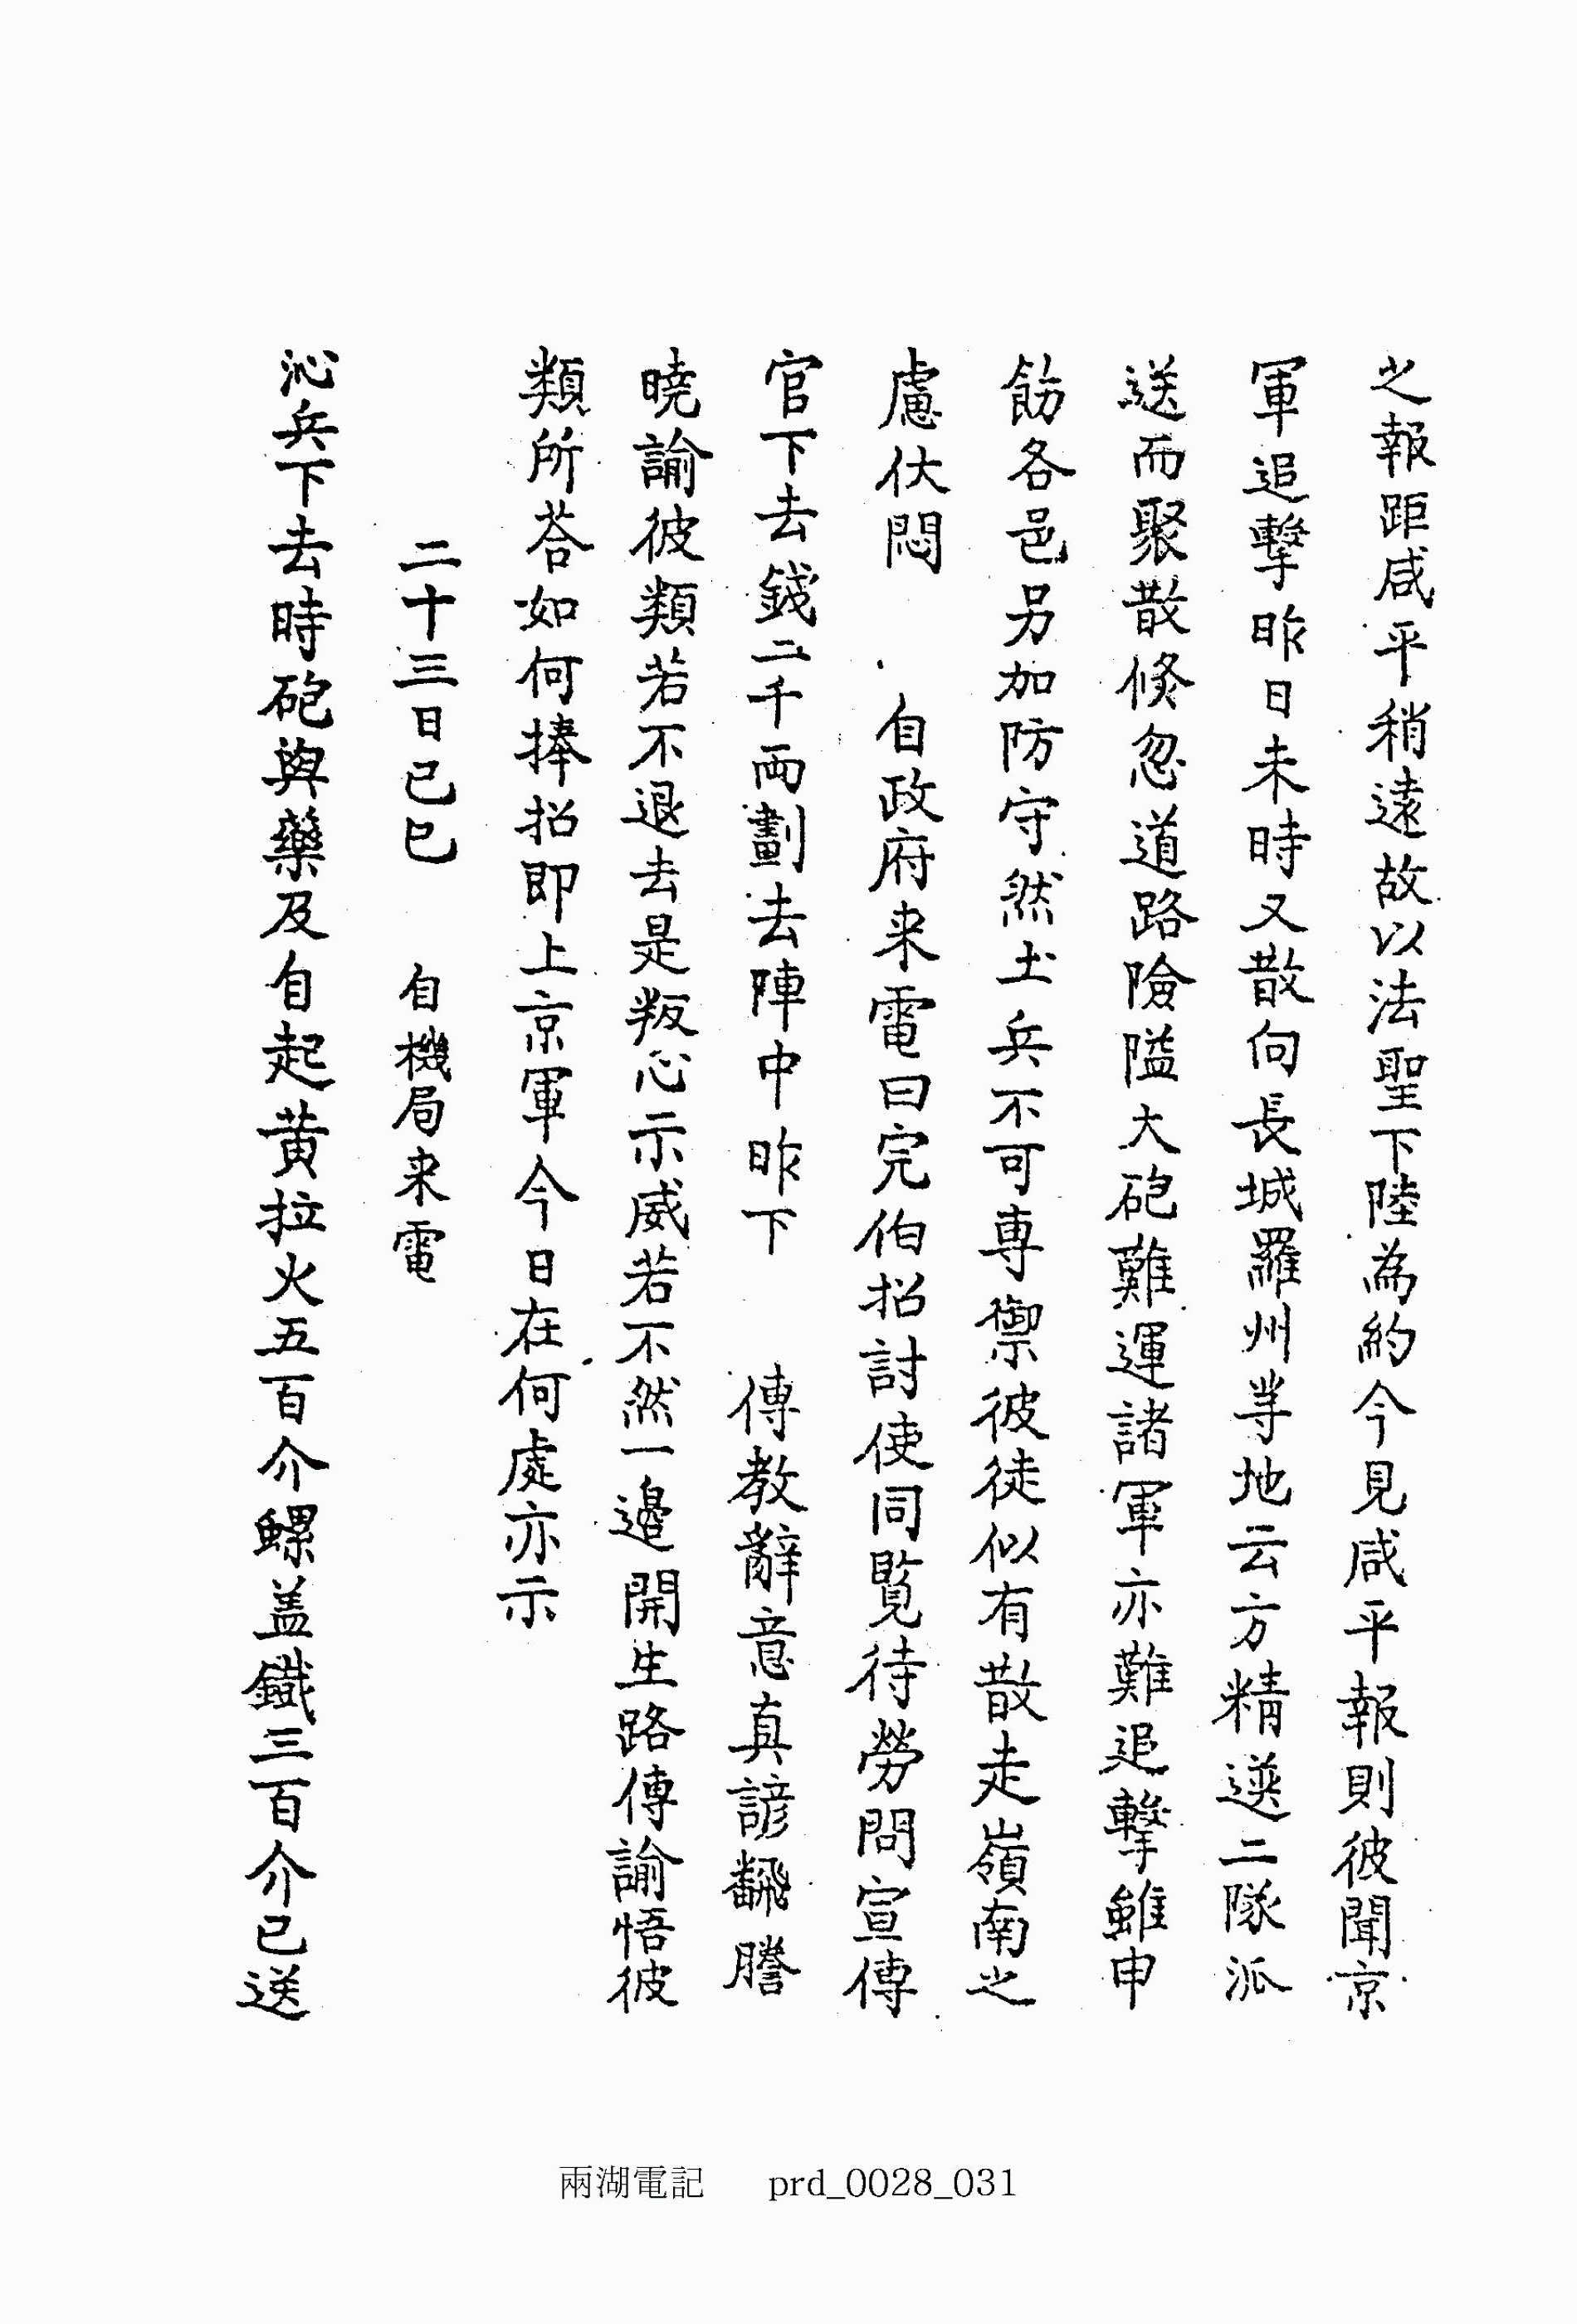 之報距咸平稍遠故以法聖下陸為約今見咸平報則彼聞京
軍追擊昨日未時又散向長城羅州等地云方精選二隊派
送而聚散倏忽道路險隘大砲難運諸軍亦難追擊雖申
飭各邑另加防守然土兵不可專禦彼徒似有散走嶺南之
慮伏悶　　自政府来電曰完伯招討使同覧待勞問宣傳
官下去錢二千両劃去陣中昨下　傳教辭意真諺飜謄
曉諭彼類若不退去是叛心示威若不然一邉開生路傳諭悟彼
類所荅如何捧招即上京軍今日在何處亦示
二十三日己巳　自機局来電
沁兵下去時砲與藥及自起黄拉火五百介螺盖鐵三百介已送
兩湖電記　prd_0028_031